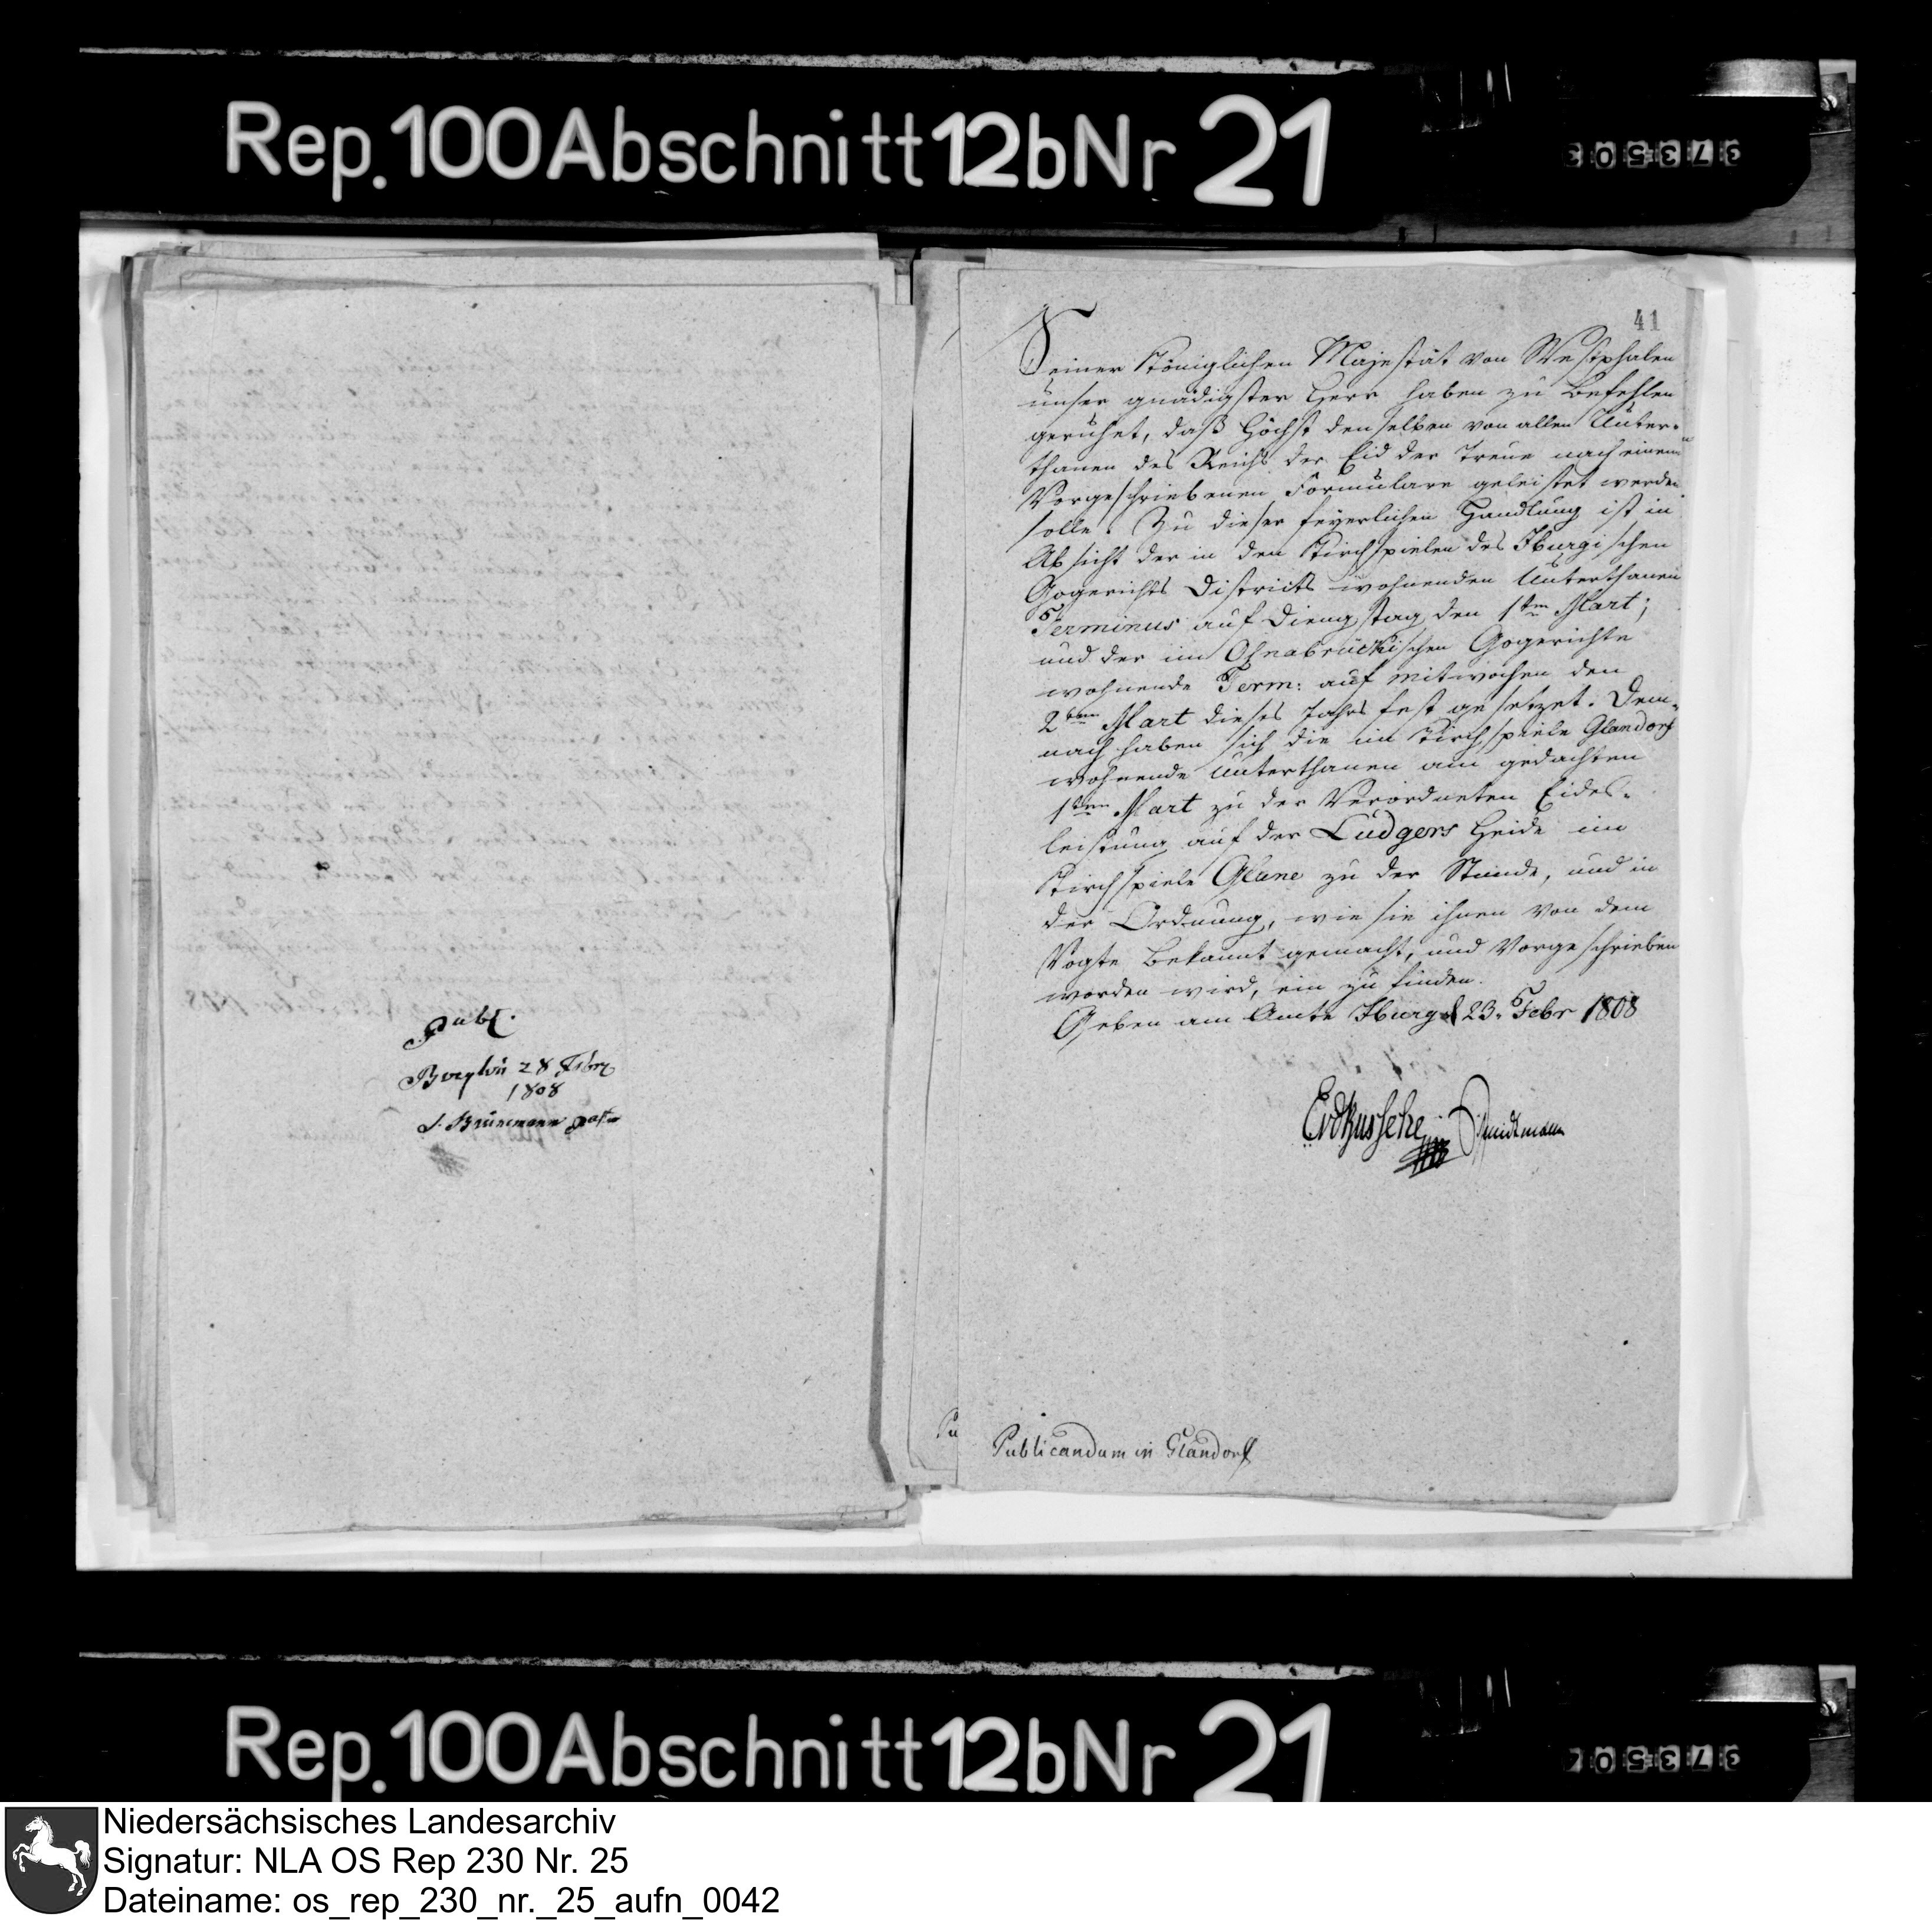 Rep. 100 Abschnitt 12b Nr 21
publ.
Borgloh 28 Febr
1808
J. Brünemann past
41
Seiner Königlichen Majestät von Westphalen
unser gnädigster Herr haben zu befehlen
geruhet, daß Höchst denselben von allen Unter-
thanen des Reichs der Eid der Treue nach einem
Vorgeschriebenen Formulare geleistet werden
solle. Zu dieser feyerlichen Handlung ist in
Absicht der in den Kirchspielen des Iburgischen
Gogerichts Districts wohnenden Unterthanen
Terminus auf Dingstag den 1ten Mart;
und der im Osnabrückischen Gogerichte
wohnende Term: auf mitwochen den
2ten Mart dieses Jahrs fest gesetzet. Dem-
nach haben sich die im Kirchspiele Glandorf
wohnende Unterthanen am gedachten
1ten Mart zu der Verordneten Eides-
leistung auf der Ludgers Heide im
Kirchspiele Glane zu der Stunde, und in
der Ordnung, wie sie ihnen von dem
Vogte bekannt gemacht, und Vorgeschrieben
worden wird, ein zu finden.
Geben am Amte Iburg d 23. Febr 1808
Pu
Publicandum in Glandorf
Rep. 100 Abschnitt 12b Nr 21
Niedersächsisches Landesarchiv
Signatur: NLA OS Rep 230 Nr. 25
Dateiname: os_rep_230_nr._25_aufn_0042